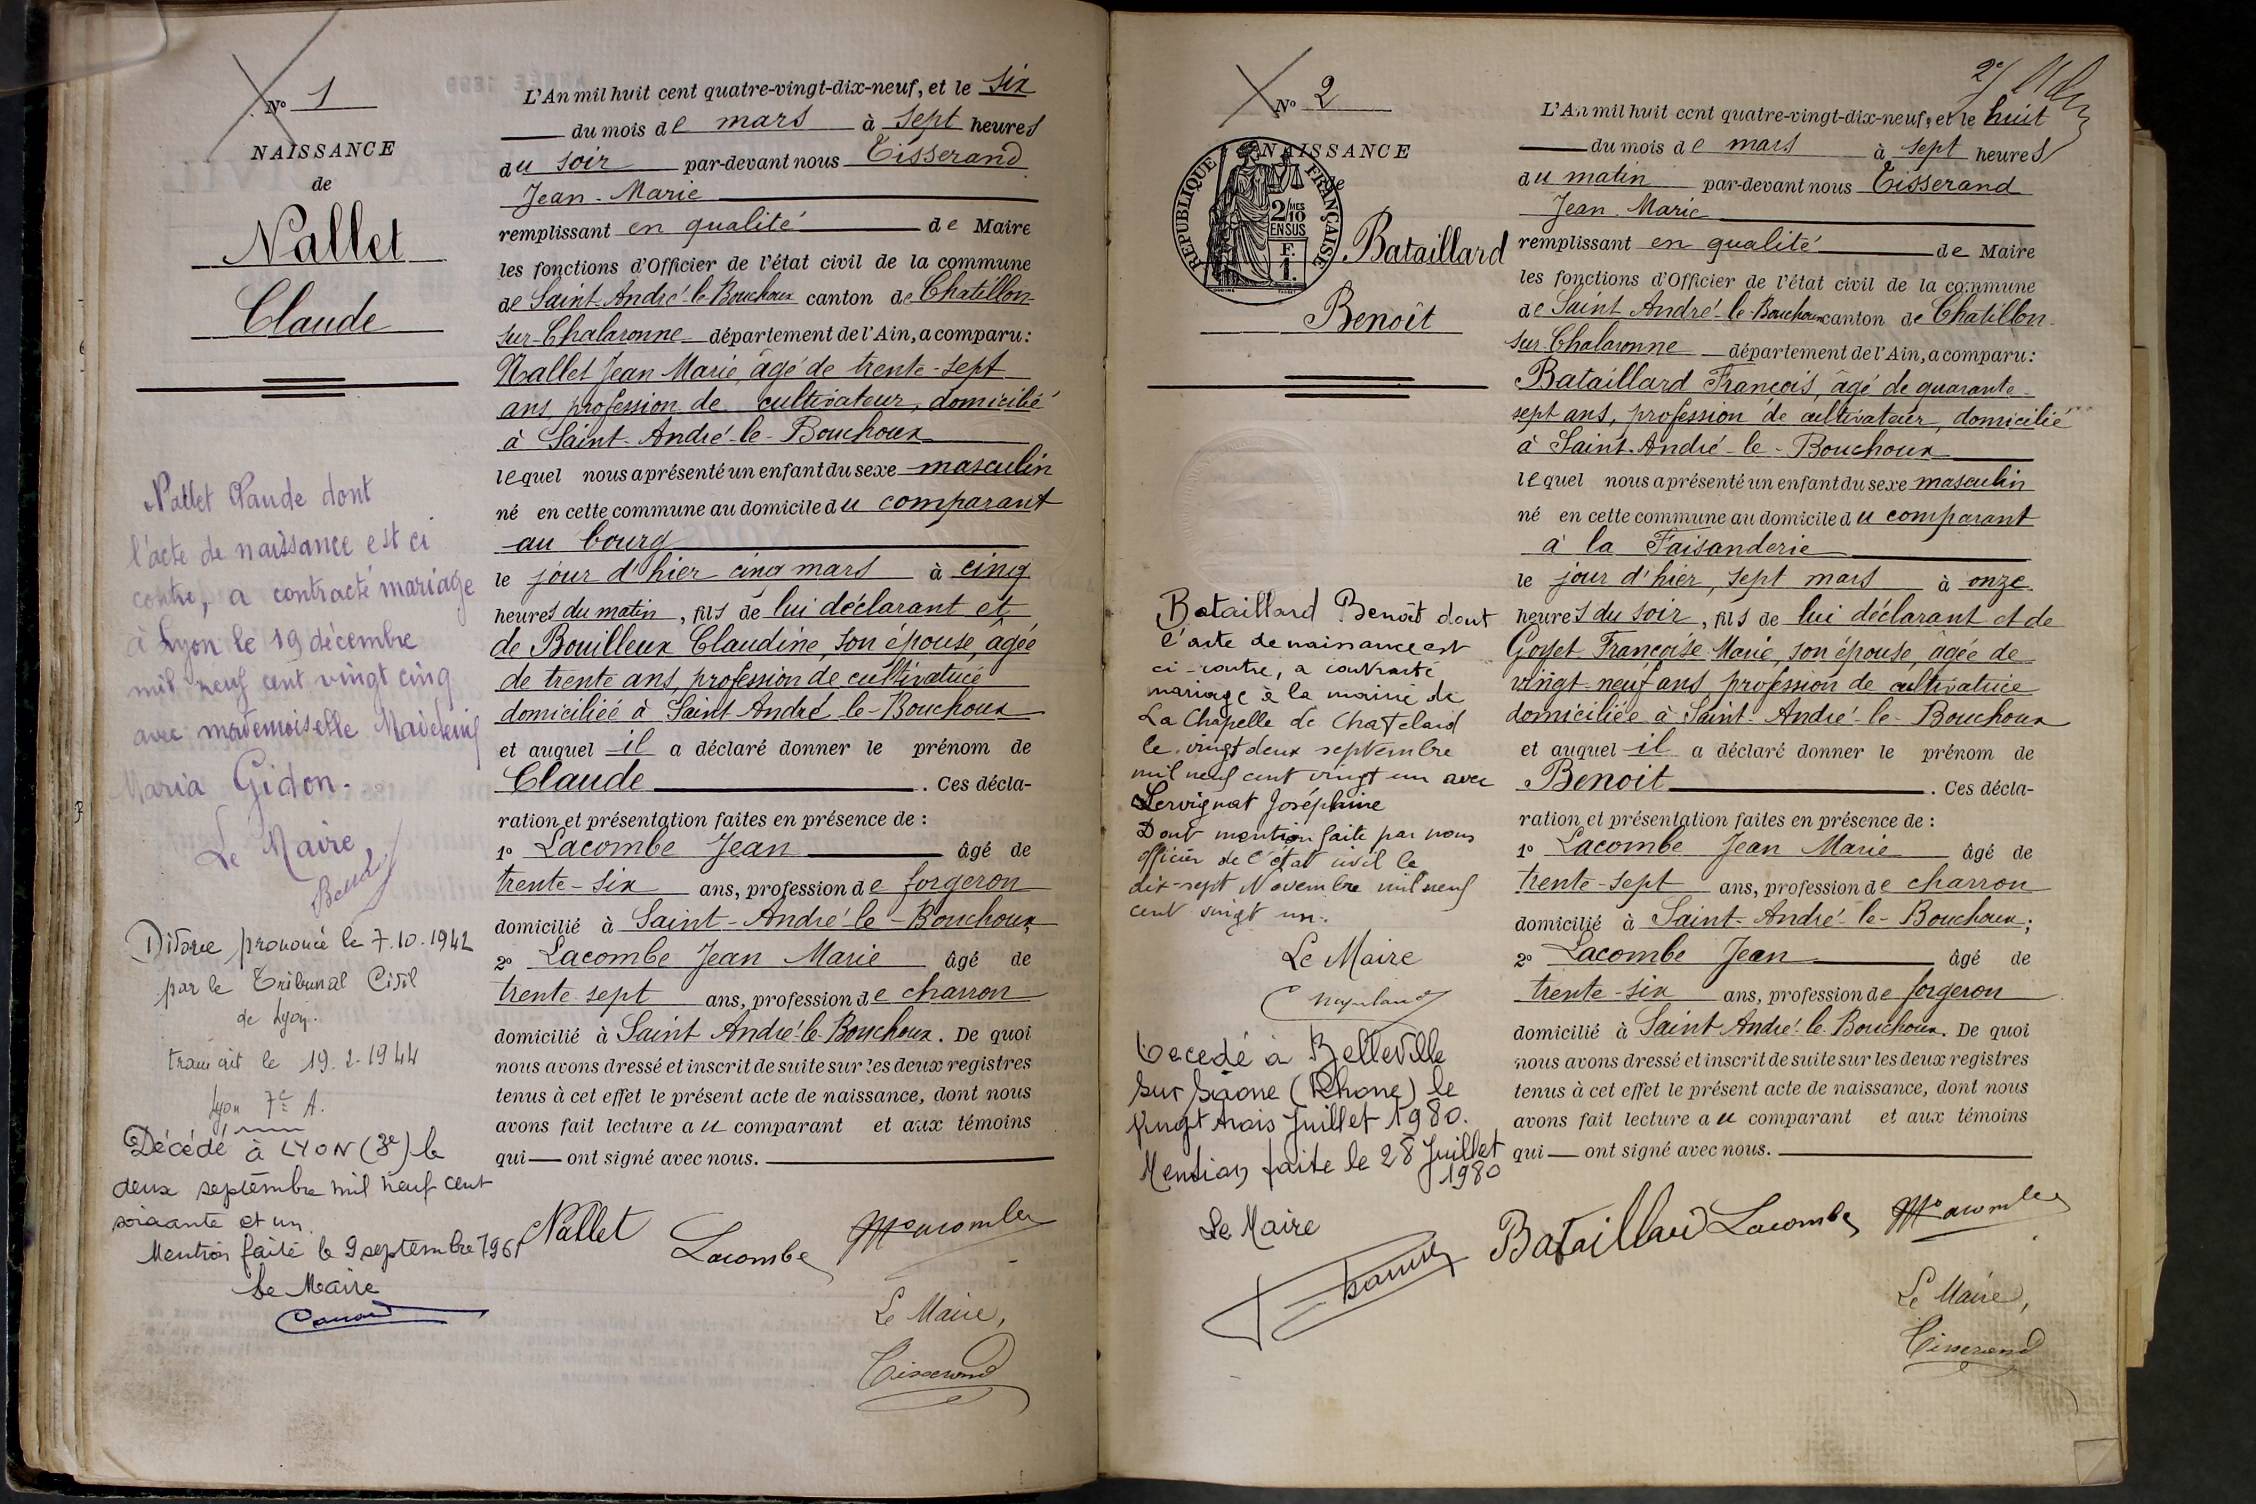 N° 1
NAISSANCE
de
Nallet
Claude
Nallet Claude dont
l'acte de naissance est ci
contre, a contracté mariage
à Lyon le 19 décembre
mil neuf cent vingt cinq
avec mademoiselle Madeleine
Maria Gidon.
Le Maire,
Divorce prononcé le 7.10.1942
par le Tribunal Civil
de Lyon.
transcrit le 19.2.1944
Lyon 7e A.
Décédé à LYON (3e) le
deux septembre mil neuf cent
soixante et un.
Mention faite le 9 septembre 1961
Le Maire
L'An mil huit cent quatre-vingt-dix-neuf, et le six
du mois de mars à sept heures
du soir par-devant nous Tisserand
Jean-Marie
remplissant en qualité de Maire
les fonctions d'Officier de l'état civil de la commune
de Saint-André-le-Bouchoux canton de Chatillon-
sur-Chalaronne département de l'Ain, a comparu:
Nallet Jean Marie, âgé de trente-sept
ans, profession de cultivateur, domicilié
à Saint-André-le-Bouchoux
lequel nous a présenté un enfant du sexe masculin
né en cette commune au domicile du comparant
au bourg
le jour d'hier cinq mars à cinq
heures du matin, fils de lui déclarant et
de Bouilleux Claudine, son épouse, âgée
de trente ans, profession de cultivatrice
domiciliée à Saint André-le-Bouchoux
et auquel il a déclaré donner le prénom de
Claude . Ces décla-
ration et présentation faites en présence de :
1° Lacombe Jean âgé de
trente-six ans, profession de forgeron
domicilié à Saint-André-le-Bouchoux;
2° Lacombe Jean Marie âgé de
trente-sept ans, profession de charron
domicilié à Saint André-le-Bouchoux. De quoi
nous avons dressé et inscrit de suite sur les deux registres
tenus à cet effet le présent acte de naissance, dont nous
avons fait lecture au comparant et aux témoins
qui ont signé avec nous.
Nallet Lacombe
Le Maire,
Tisserand
N° 2
NAISSANCE
de
REPUBLIQUE FRANÇAISE
2/10 MES
EN SUS
F.
1.
Bataillard
Benoît
Bataillard Benoît dont
l'acte de naissance est
ci-contre, a contracté
mariage à la mairie de
La Chapelle de Chatelard
le vingt deux septembre
mil neuf cent vingt un avec
Servignat Joséphine
Dont mention faite par nous
officier de l'état civil le
dix-sept Novembre mil neuf
cent vingt un.
Le Maire
Décédé à Belleville
sur Saone (Rhone) le
vingt trois Juillet 1980.
Mention faite le 28 Juillet
1980
Le Maire
L'An mil huit cent quatre-vingt-dix-neuf, et le huit
du mois de mars à sept heures
du matin par-devant nous Tisserand
Jean-Marie
remplissant en qualité de Maire
les fonctions d'Officier de l'état civil de la commune
de Saint André-le-Bouchoux canton de Chatillon-
sur-Chalaronne département de l'Ain, a comparu:
Bataillard François, âgé de quarante-
sept ans, profession de cultivateur, domicilié
à Saint-André-le-Bouchoux
lequel nous a présenté un enfant du sexe masculin
né en cette commune au domicile du comparant
à la Faisanderie
le jour d'hier, sept mars à onze
heures du soir, fils de lui déclarant et de
Goyet Françoise Marie, son épouse, âgée de
vingt-neuf ans, profession de cultivatrice
domiciliée à Saint-André-le-Bouchoux
et auquel il a déclaré donner le prénom de
Benoit . Ces décla-
ration et présentation faites en présence de :
1° Lacombe Jean Marie âgé de
trente-sept ans, profession de charron
domicilié à Saint-André-le-Bouchoux;
2° Lacombe Jean âgé de
trente-six ans, profession de forgeron
domicilié à Saint André-le-Bouchoux. De quoi
nous avons dressé et inscrit de suite sur les deux registres
tenus à cet effet le présent acte de naissance, dont nous
avons fait lecture au comparant et aux témoins
qui ont signé avec nous.
Bataillard Lacombe
Le Maire,
Tisserand